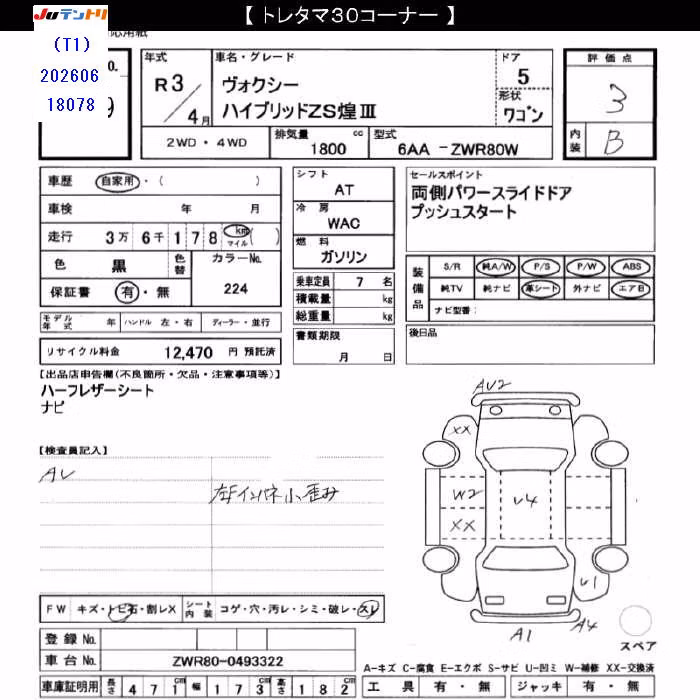 【 トレタマ30コーナー 】
JUテントリ
応用紙
(T1)
202606
18078
年式
R3/4月
車名・グレード
ヴォクシー
ハイブリッドZS煌Ⅲ
ドア
5
形状
ワゴン
評価点
3
内装
B
2WD・4WD
排気量 cc
1800
型式
6AA -ZWR80W
車歴 自家用・( )
車検 年 月
走行 3万6千178 km マイル( )
色 黒
色替
カラーNo.
224
保証書 有・無
シフト
AT
冷房
WAC
燃料
ガソリン
乗車定員 7 名
積載量 kg
総重量 kg
書類期限
月 日
セールスポイント
両側パワースライドドア
プッシュスタート
装備品
S/R 純A/W P/S P/W ABS
純TV 純ナビ 革シート 外ナビ エアB
ナビ型番:
後日品
モデル年式 年 ハンドル 左・右 ディーラー・並行
リサイクル料金 12,470 円 預託済
【出品店申告欄(不良箇所・欠品・注意事項等)】
ハーフレザーシート
ナビ
【検査員記入】
AU
左Fインパネ小歪み
AU2
XX
W2
U4
XX
U1
A1
A4
スペア
FW キズ・トビ石・割レX
シート内装 コゲ・穴・汚レ・シミ・破レ・スレ
登録 No.
車台 No. ZWR80-0493322
車庫証明用 長さ 471cm 幅 173cm 高さ 182cm
A-キズ C-腐食 E-エクボ S-サビ U-凹ミ W-補修 XX-交換済
工具 有・無 ジャッキ 有・無